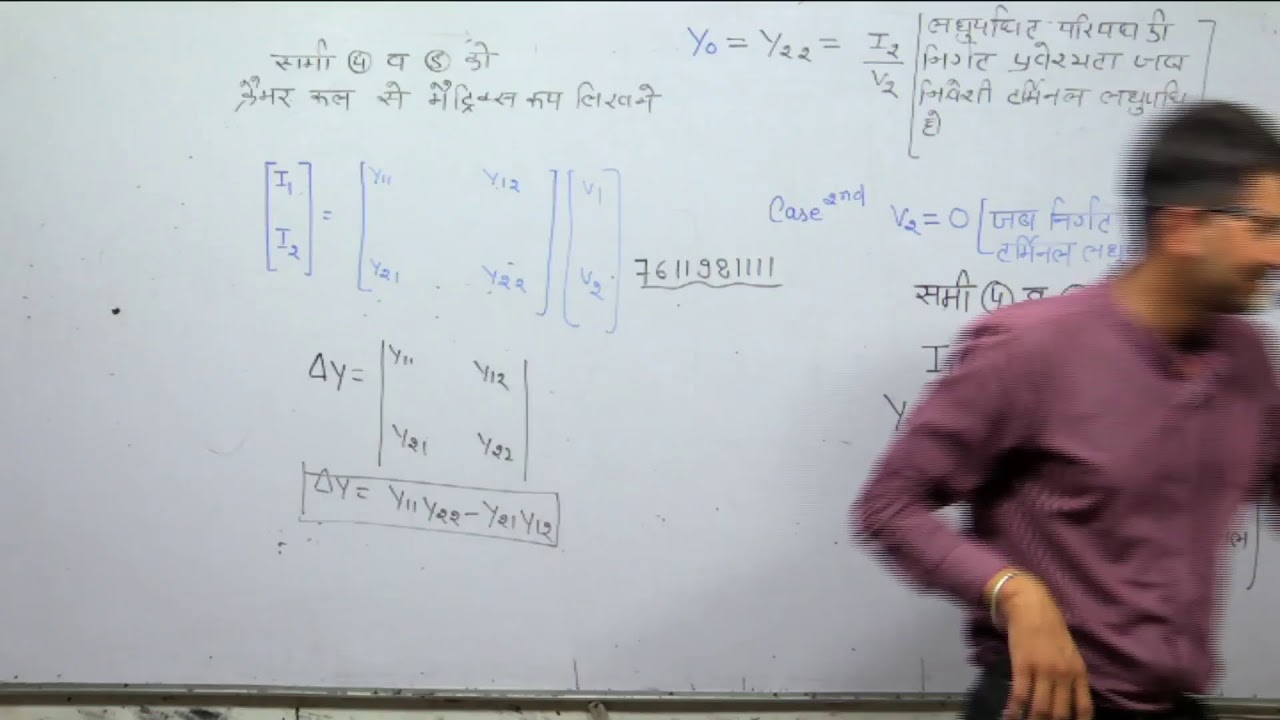 समी ④ व ⑤ को
क्रैमर रूल से मैट्रिक्स रूप लिखने
[I₁ I₂] = [Y₁₁ Y₁₂
Y₂₁ Y₂₂] [V₁ V₂]
7611981111
ΔY = |Y₁₁ Y₁₂
Y₂₁ Y₂₂|
ΔY = Y₁₁Y₂₂ - Y₂₁Y₁₂
Y₀ = Y₂₂ = I₂/V₂
लघुपथित परिपथ की
निर्गत प्रवेश्यता जब
निवेशी टर्मिनल लघुपथि
हो
Case 2nd V₂ = 0 [जब निर्गत
टर्मिनल लघु
समी ④ व
I
Y